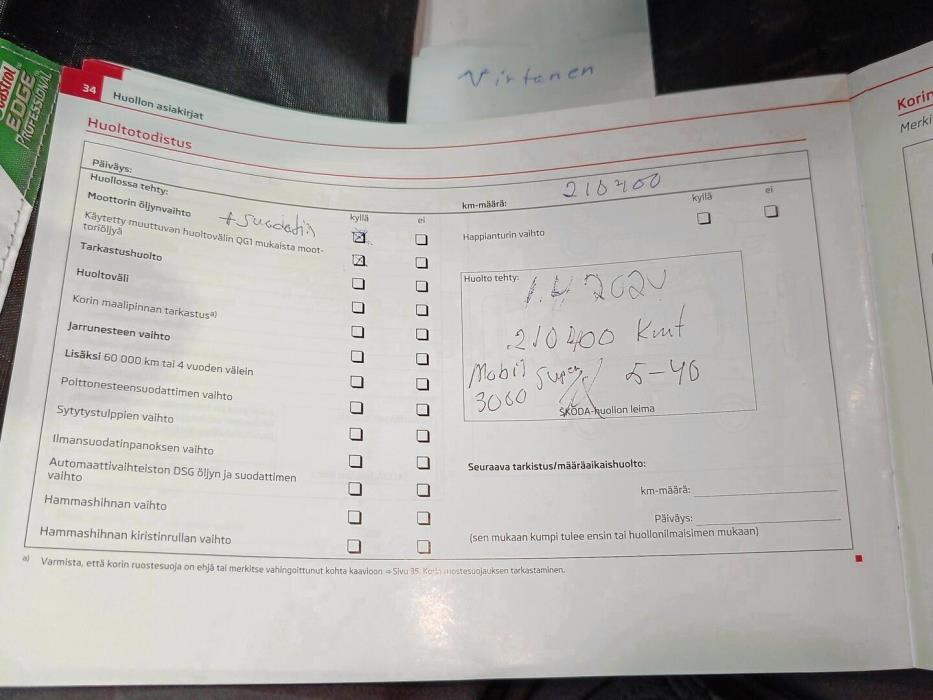 Virtanen
Castrol
EDGE
PROFESSIONAL
34
Huollon asiakirjat
Huoltotodistus
Päiväys:
km-määrä: 210400
Huollossa tehty:
kyllä ei
kyllä ei
Moottorin öljynvaihto + suodatin
Käytetty muuttuvan huoltovälin QG1 mukaista moot-
toriöljyä
Happianturin vaihto
Tarkastushuolto
Huoltoväli
Korin maalipinnan tarkastus a)
Jarrunesteen vaihto
Lisäksi 60 000 km tai 4 vuoden välein
Polttonesteensuodattimen vaihto
Sytytystulppien vaihto
Ilmansuodatinpanoksen vaihto
Automaattivaihteiston DSG öljyn ja suodattimen
vaihto
Hammashihnan vaihto
Hammashihnan kiristinrullan vaihto
Huolto tehty:
210400 Kmt
Mobil Super 5-40
3000
ŠKODA-huollon leima
Seuraava tarkistus/määräaikaishuolto:
km-määrä:
Päiväys:
(sen mukaan kumpi tulee ensin tai huollonilmaisimen mukaan)
a) Varmista, että korin ruostesuoja on ehjä tai merkitse vahingoittunut kohta kaavioon ⇒ Sivu 35, Korin ruostesuojauksen tarkastaminen.
Korin
Merki